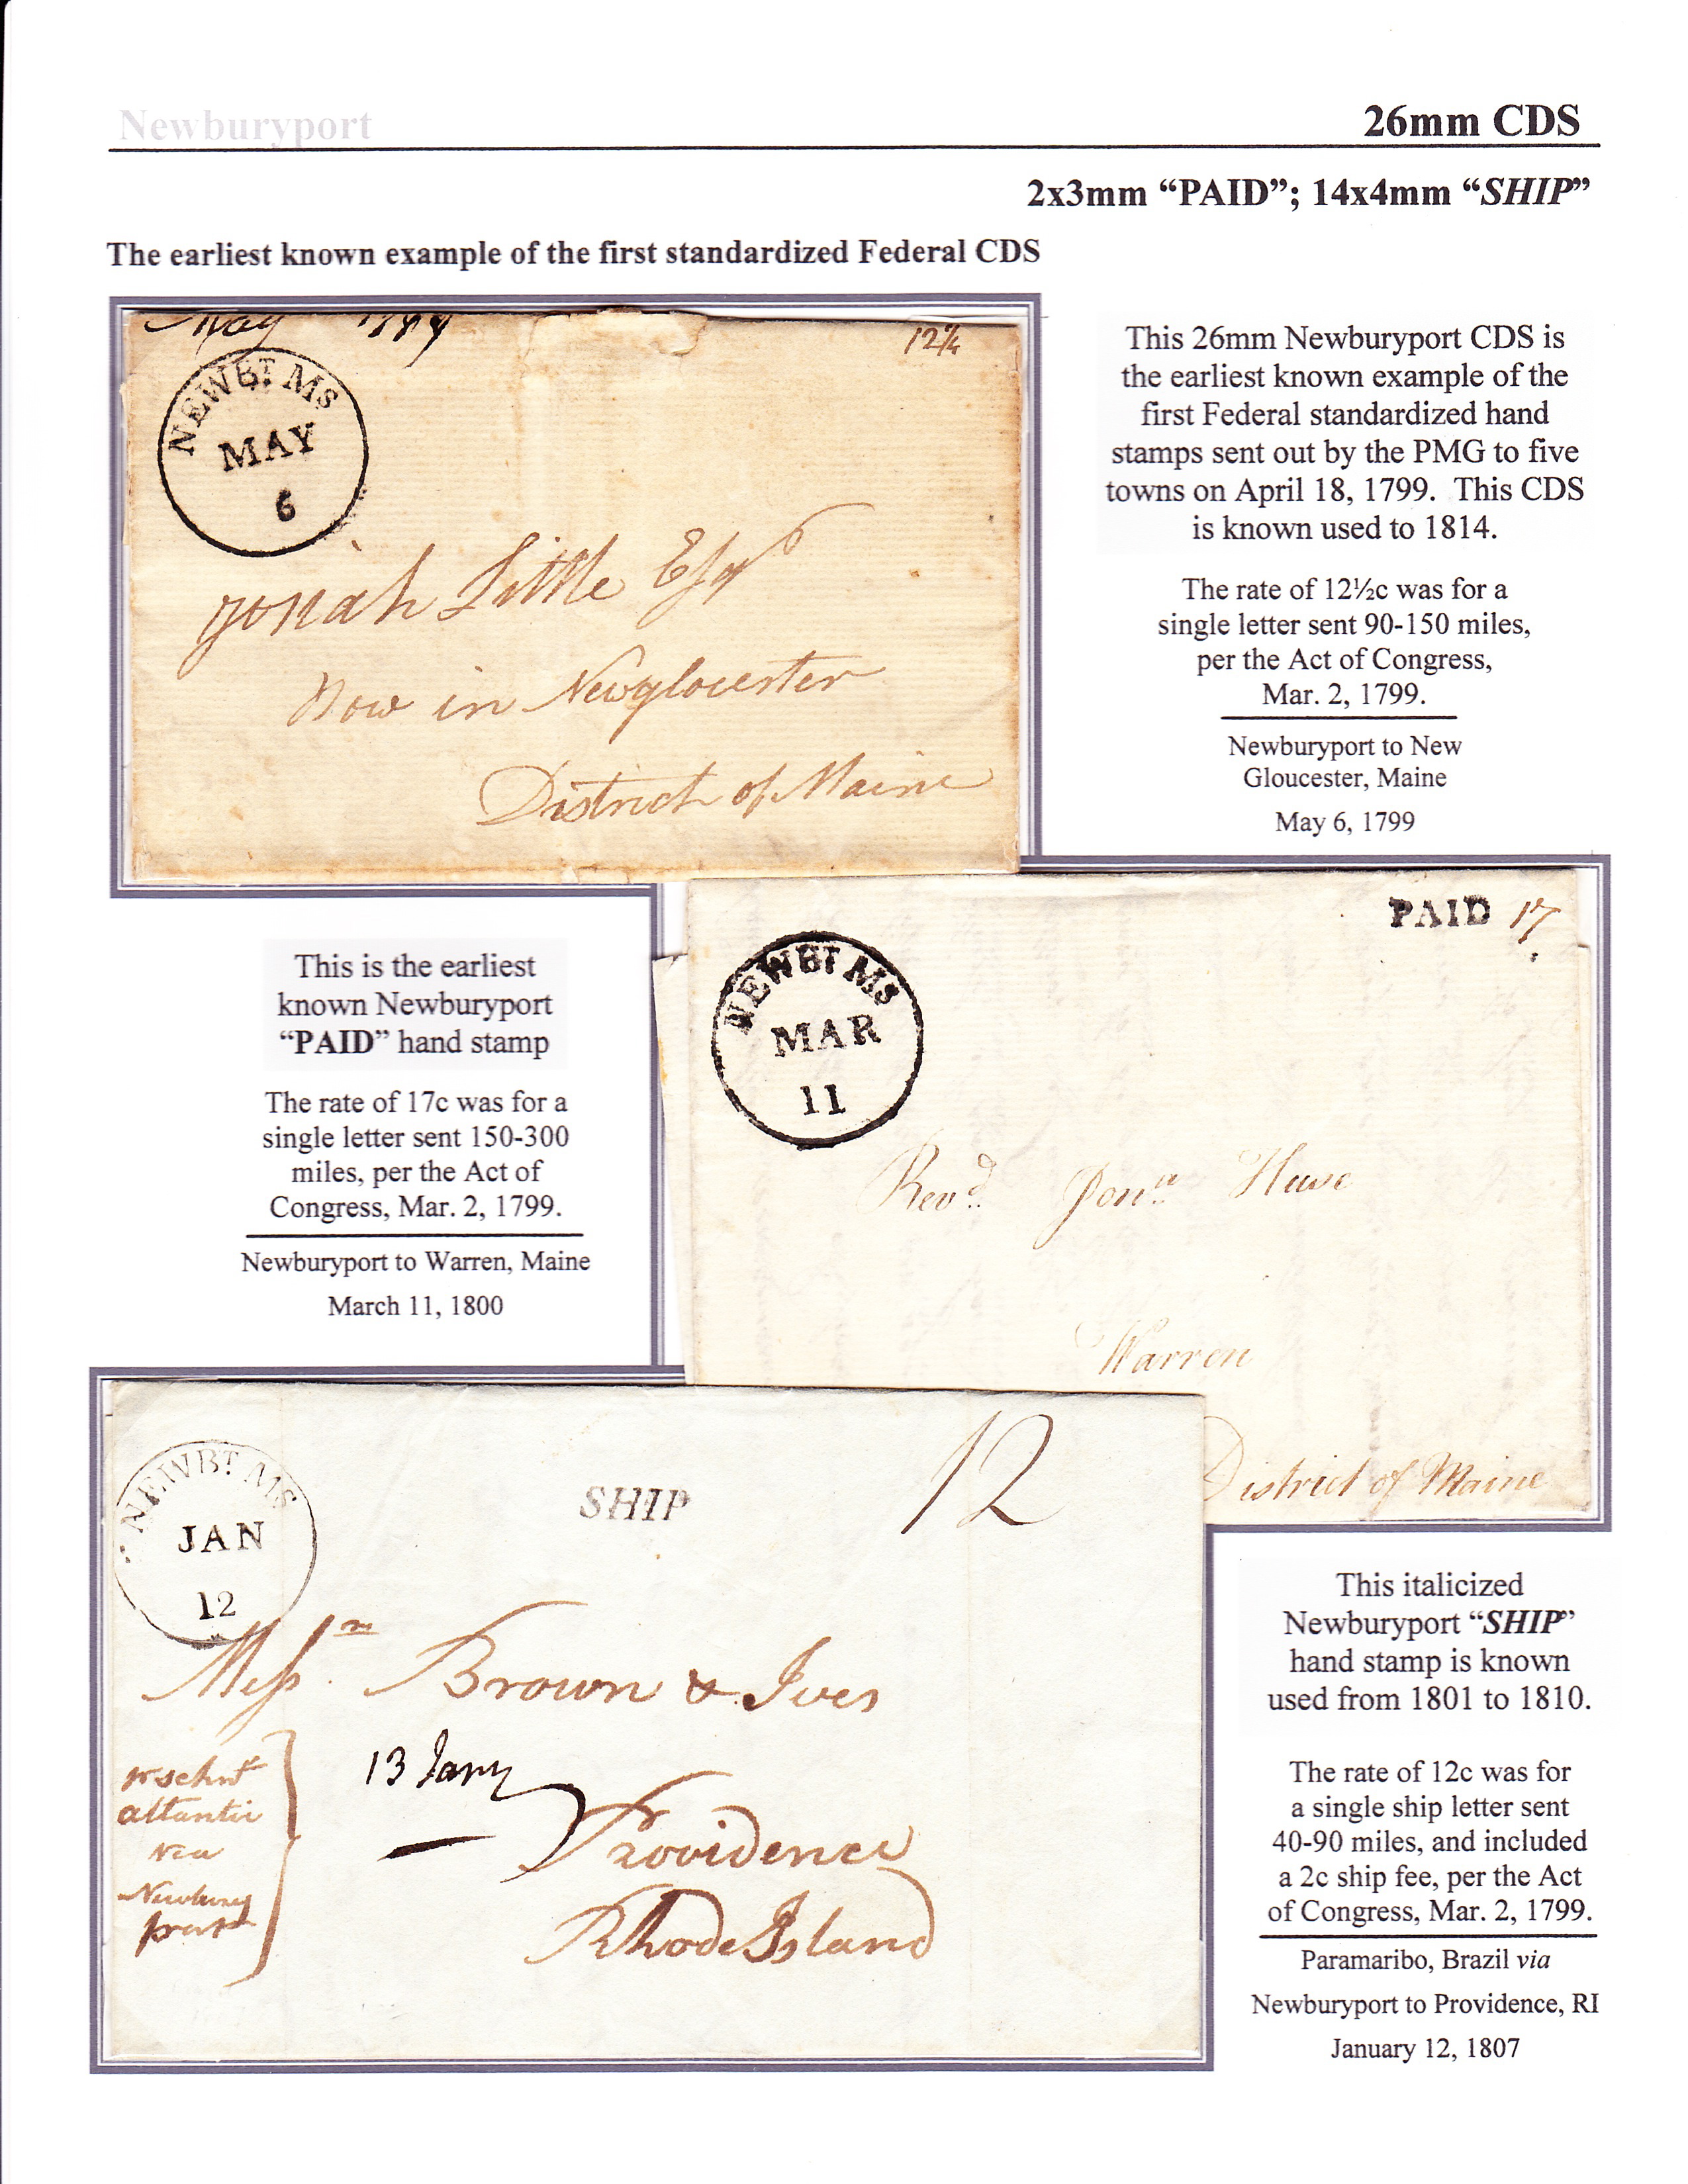 Newburyport
26mm CDS
2x3mm “PAID”; 14x4mm “SHIP”
The earliest known example of the first standardized Federal CDS
May 1799
12½
NEWBT MS
MAY
6
Josiah Little Esqr
Now in Newglocester
District of Maine
This 26mm Newburyport CDS is
the earliest known example of the
first Federal standardized hand
stamps sent out by the PMG to five
towns on April 18, 1799. This CDS
is known used to 1814.
The rate of 12½c was for a
single letter sent 90-150 miles,
per the Act of Congress,
Mar. 2, 1799.
Newburyport to New
Gloucester, Maine
May 6, 1799
This is the earliest
known Newburyport
“PAID” hand stamp
The rate of 17c was for a
single letter sent 150-300
miles, per the Act of
Congress, Mar. 2, 1799.
Newburyport to Warren, Maine
March 11, 1800
PAID 17
NEWBT MS
MAR
11
Revd. Jonn Huse
Warren
District of Maine
NEWBT MS
JAN
12
SHIP
12
Messrs Brown & Ives
13 Jany
Providence
Rhode Island
pr schnr
atlantic
via
Newbury
port
This italicized
Newburyport “SHIP”
hand stamp is known
used from 1801 to 1810.
The rate of 12c was for
a single ship letter sent
40-90 miles, and included
a 2c ship fee, per the Act
of Congress, Mar. 2, 1799.
Paramaribo, Brazil via
Newburyport to Providence, RI
January 12, 1807